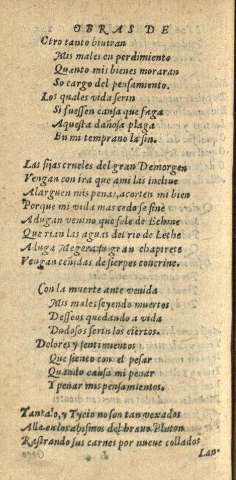 OBRAS DE
Otro tanto biuiran
Mis males en perdimiento
Quanto mis bienes moraran
So cargo del pensamiento.
Los quales vida serin
Si fuessen causa que haga
Aquesta dañosa plaga
En mi temprano la fin.
Las hijas crueles del gran Demorgen
Vengan con ira que ami las incline
Alarguen mis penas, acorten mi bien
Porque mi vida mas cedo se fine
Adugan venino que sale de
Que rian las aguas del rio de Lethe
Aluga Megera su gran chapirete
Vengan ceñidas de sierpes
Con la muerte ante venida
Mis males seyendo muertos
Desseos quedando a vida
Dudosos serin los ciertos.
Dolores y sentimientos
Que siento con el pesar
Quando causa mi pesar
Y penar mis pensamientos.
Tantalo, y Tycio no son tan vexados
Alla en los abismos del brauo Pluton
Rastrando sus carnes por nueue collados
Lan-